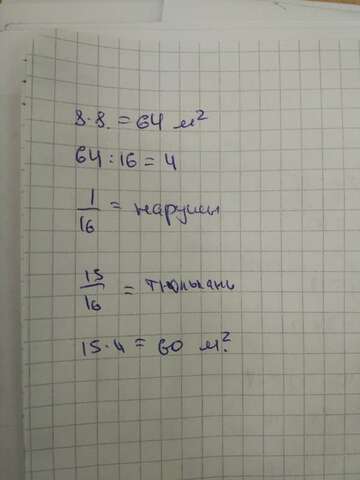 8·8. = 64 м²
64 : 16 = 4
1/16 = нарциссы
15/16 = тюльпань
15·4 = 60 м².